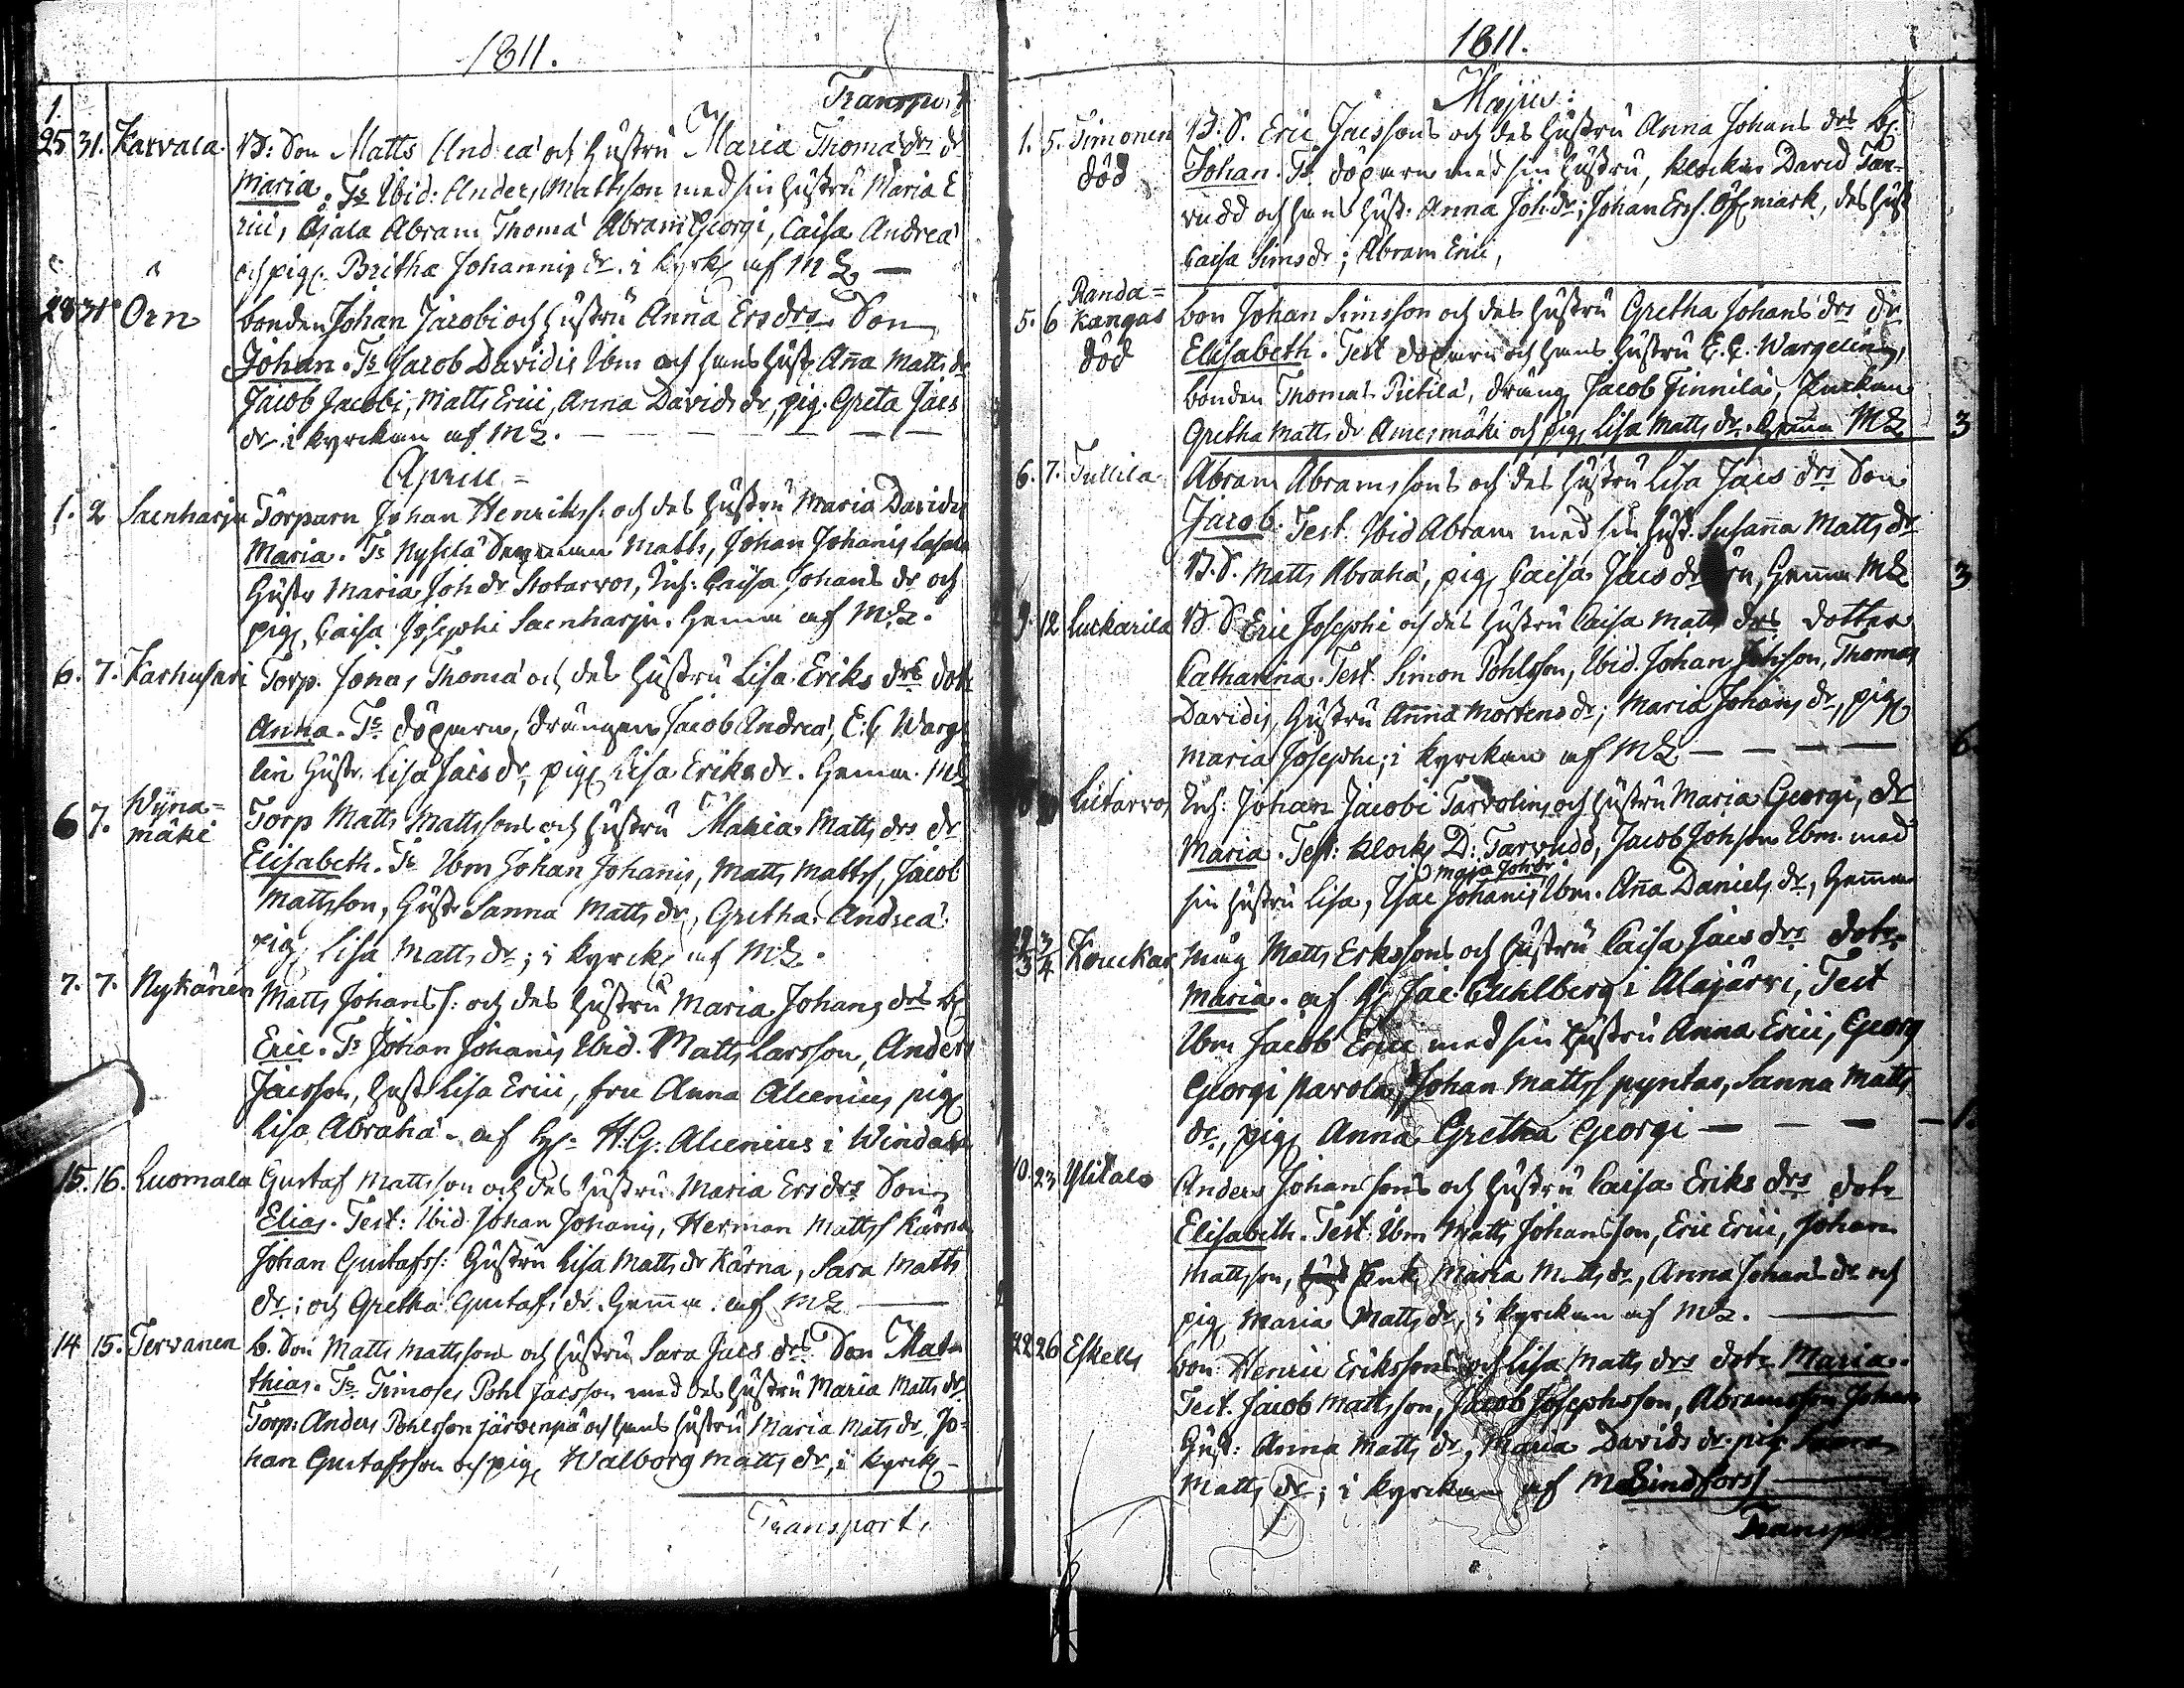 1811.
Transport
25 31. Karvala. B: Son Matts Andreæ och Hustru Maria Thomæ drs dr
Maria. Ts Ibid: Anders Mattsson med sin Hustru Maria E
rici, Ojala Abram Thomæ Abram Georgi, Caisa Andreæ
och pig. Britha Johannis dr. i kyrk af M L —
28 31 Örn bonden Johan Jacobi och Hustru Anna Ers drs Son
Johan. Ts Jacob Davidis Ibm och hans Hust Aña Matts dr
Jacob Jacobi, Matts Erici, Anna Davids dr, pig. Greta Jacs
dr i kyrckan af M L. — — — — —
April =
1. 2 Saenharju Torparn Johan Henrikss. och des Hustru Maria Davidis
Maria. Ts Nysilä Matts, Johan Johanis
Hustr Maria Joh dr Stotarvos, Inh: Caisa Johans dr och
pig, Caisa Josephi Saenharju. Hemma af M.L.
6. 7. Karhusari Torp. Jonas Thomæ och des Hustru Lisa Eriks drs dotr
Anna. Ts döparn, drängen Jacob Andreæ, E. G Warge
lin Hustr. Lisa Jacs dr, pig Lisa Eriks dr. Hemma. M L
6 7. Wijna=
mäki Torp Matts Mattssons och Hustru Maria Matts drs dr
Elisabeth. Ts Ibm Johan Johanis, Matts Mattss, Jacob
Mattsson, Hustr Sanna Matts dr, Gretha Andreæ
pig Lisa Matts dr; i kyrck af M L.
7. 7. Nykänen Matts Johanss: och des Hustru Maria Johans drs b
Eric. Ts Johan Johanis Ibid. Matts Larsson, Anders
Jacsson, Hust Lisa Erici, fru Anna Alcenius pig
Lisa Abrahæ. af H. G. Alcenius i Windala
15. 16. Luomala Gustaf Mattsson och des Hustru Maria Ers drs Son
Elias. Test: Ibid Johan Johanis, Herman Mattss Kärna
Johan Gustafs: Hustru Lisa Matts dr Kärna, Sara Matts
dr; och Gretha Gustafs dr. Hema. af M L —
14 15. Tervanen b. Son Matts Mattsson och Hustru Sara Jacs drs Son Mat=
thias. Ts Timoses Pohl Jacsson med des Hustru Maria Matts dr
Torp: Anders Pohlsson järvenpä och hans Hustru Maria Mats dr, Jo=
han Gustafsson och pig Walborg Matts dr, i kyrck —
Transport,
1811.
Majus:
1. 5. Timonen B. S. Eric Jacssons och des Hustru Anna Johans drs b
död Johan. Ts döparn med sin Hustru, klockar David Tar=
vudd och hans Hust: Anna Joh dr; Johan Erss. Öfvmark, des Hust
Caisa Sims dr; Abram Erici,
5. 6 Randa=
Kangas
död bon Johan Simsson och des Hustru Gretha Johans drs dr
Elisabeth. Test döparn och hans Hustru E. C. Wargelin,
bonden Thomas Pietilä, dräng Jacob Finnilä, Enckan
Gretha Matts dr Amesmäki och pig Lisa Matts dr. Hema M L 3
6. 7. Tullila Abram Abramssons och des Hustru Lisa Jacs drs Son
Jacob. Test. Ibid Abram med sin Hust. Susaña Matts dr
B. S. Matts Abrahæ, pig Caisa Jacs dr Örn, Hema M L 3
9. 12 Luckarila B S Eric Josephi och des Hustru Caisa Matts drs dotter
Catharina. Test. Simon Pohlsson, Ibid. Johan Johsson, Thomas
Davidis, Hustru Anna Mortens dr; Maria Johans dr, pig
Maria Josephi; i kyrckan af M L — — — — 6
Lietarvos Inh: Johan Jacobi Tarvolins och Hustru Maria Georgi, dr
Maria. Test: klock D: Tarvudd, Jacob Johsson Ibm. med
Maja Joh dr
sin Hustru Lisa, Isac Johanis Ibm. Aña Daniels dr, Hema
29/3 3/4 Kouckar Matts Erikssons och Hustru Caisa Jacs drs dotr
Maria. af Jac: Cuhlberg i Alajärvi, Test
Ibm Jacob Erici med sin Hustru Anna Erici, Georg
Georgi Parola, Johan Mattss pyntas, Sanna Matts
dr, pig Anna Gretha Georgi — — — — 1.
10. 23 Ylitalo Anders Johanssons och Hustru Caisa Eriks drs dotr
Elisabeth. Test. Ibm Matts Johansson, Eric Erici, Johan
Mattsson, Enk, Maria Matts dr, Anna Johans dr och
pig Maria Matts dr, i kyrckan af M L. —
22 26 Eskells bon: Henric Erikssons och Lisa Matts drs dotr Maria.
Test. Jacob Mattsson, Jacob Josephsson, Abramsson Johan
Hust: Anna Matts dr, Maria Davids dr. pig Sanna
Matts dr; i kyrckan af M Lindfors —
Transport